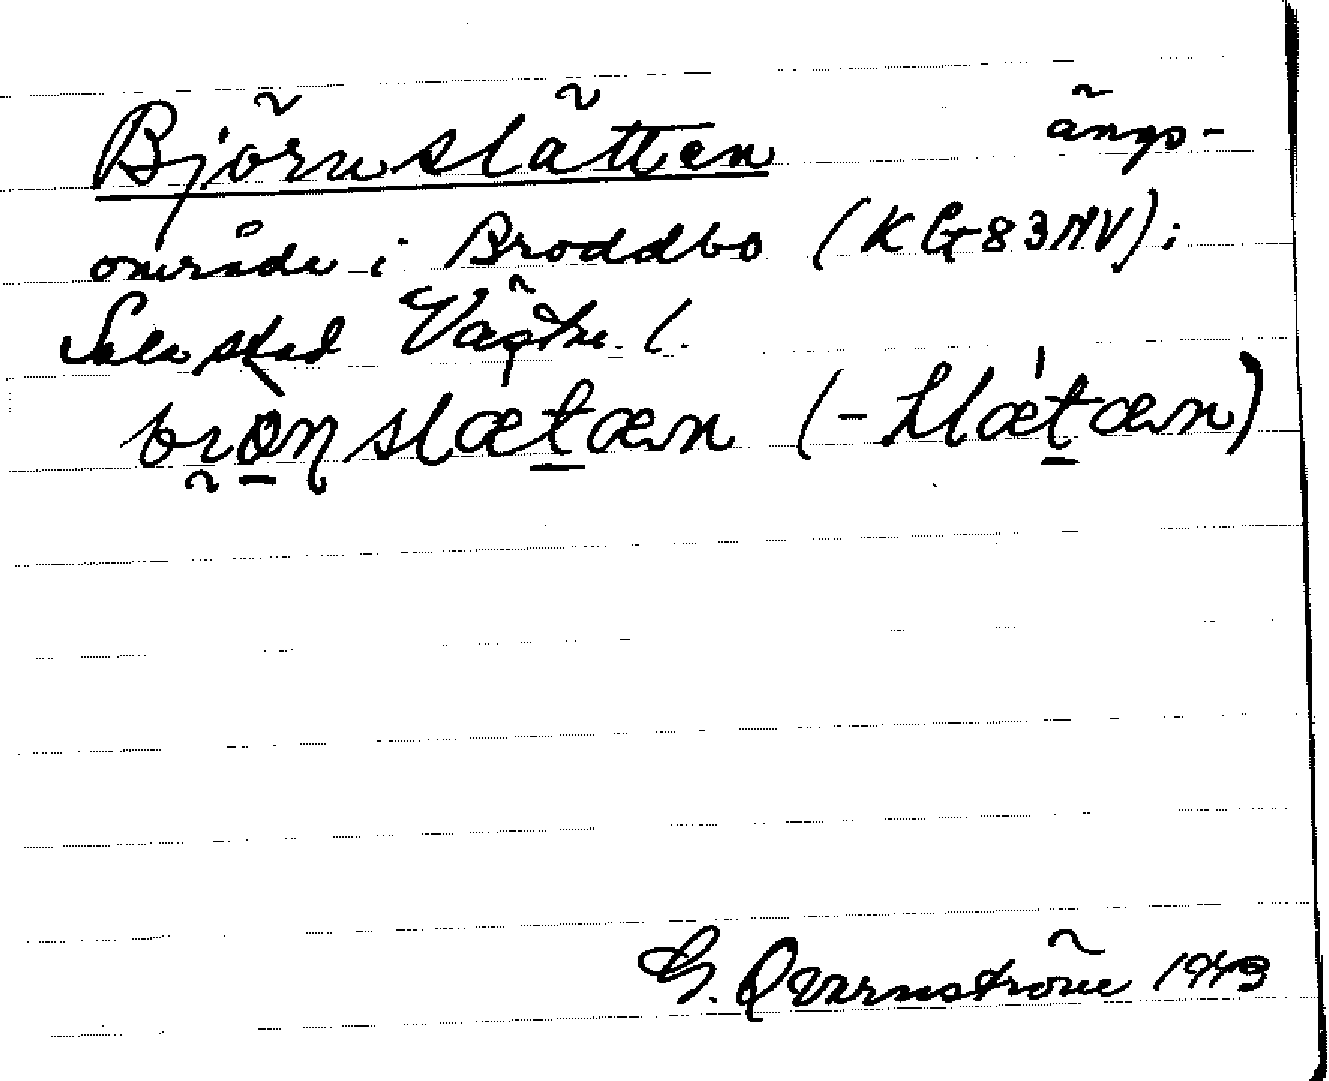 Björnslätten ängs-
område i Broddbo (KG83NV) i
Sala stad Västm. l.
slætæn (-slætæn)
G. Qvarnström 1943